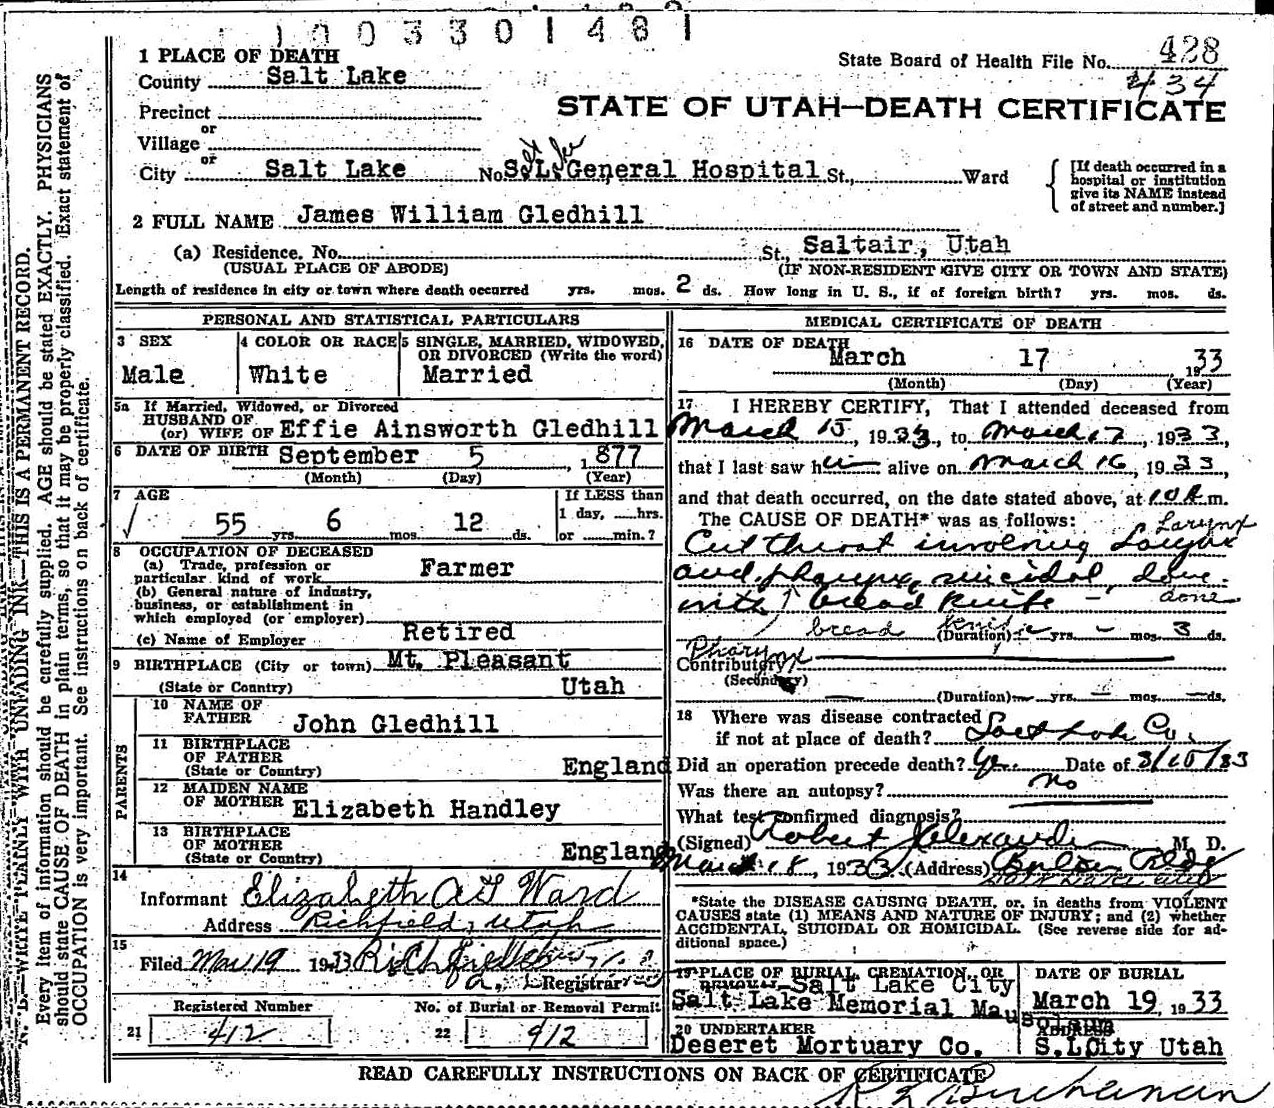 1003301481
1 PLACE OF DEATH
State Board of Health File No. 428
434
County Salt Lake
STATE OF UTAH—DEATH CERTIFICATE
Precinct
or
Village
or
City Salt Lake No. S. L. General Hospital St., Ward
[If death occurred in a hospital or institution give its NAME instead of street and number.]
2 FULL NAME James William Gledhill
(a) Residence. No. St., Saltair, Utah
(USUAL PLACE OF ABODE) (IF NON-RESIDENT GIVE CITY OR TOWN AND STATE)
Length of residence in city or town where death occurred yrs. mos. 2 ds. How long in U. S., if of foreign birth? yrs. mos. ds.
PERSONAL AND STATISTICAL PARTICULARS
3 SEX
Male
4 COLOR OR RACE
White
5 SINGLE, MARRIED, WIDOWED, OR DIVORCED (Write the word)
Married
5a If Married, Widowed, or Divorced
HUSBAND OF
(or) WIFE OF Effie Ainsworth Gledhill
6 DATE OF BIRTH September 5, 1877
(Month) (Day) (Year)
7 AGE
55 yrs. 6 mos. 12 ds.
If LESS than
1 day, ....hrs.
or ....min.?
8 OCCUPATION OF DECEASED
(a) Trade, profession or
particular kind of work Farmer
(b) General nature of industry,
business, or establishment in
which employed (or employer)
(c) Name of Employer Retired
9 BIRTHPLACE (City or town) Mt. Pleasant
(State or Country) Utah
PARENTS
10 NAME OF
FATHER John Gledhill
11 BIRTHPLACE
OF FATHER
(State or Country) England
12 MAIDEN NAME
OF MOTHER Elizabeth Handley
13 BIRTHPLACE
OF MOTHER
(State or Country) England
14
Informant Elizabeth Ward
Address Richfield, Utah
15
Filed Mar 19 1933
Registrar
Registered Number
21 412
No. of Burial or Removal Permit
22 412
MEDICAL CERTIFICATE OF DEATH
16 DATE OF DEATH
March 17, 1933
(Month) (Day) (Year)
17 I HEREBY CERTIFY, That I attended deceased from
March 15, 1933, to March 17, 1933,
that I last saw him alive on March 16, 1933
and that death occurred, on the date stated above, at 10 A.m.
The CAUSE OF DEATH* was as follows:
Larynx
Cut throat involving Larynx
and pharynx, suicidal, done
with bread knife – done
bread knife (Duration) – yrs. – mos. 3 ds.
Pharynx
Contributory
(Secondary)
(Duration) – yrs. – mos. – ds.
18 Where was disease contracted
if not at place of death? Salt Lake Co.
Did an operation precede death? Yes Date of 3/15/33
Was there an autopsy? No
What test confirmed diagnosis?
(Signed) Robert Alexander M. D.
March 18, 1933 (Address) Boston Bldg
Salt Lake City
*State the DISEASE CAUSING DEATH, or, in deaths from VIOLENT
CAUSES state (1) MEANS AND NATURE OF INJURY; and (2) whether
ACCIDENTAL, SUICIDAL OR HOMICIDAL. (See reverse side for ad-
ditional space.)
19 PLACE OF BURIAL, CREMATION, OR
REMOVAL Salt Lake City
Salt Lake Memorial Mausoleum
DATE OF BURIAL
March 19, 1933
20 UNDERTAKER
Deseret Mortuary Co.
ADDRESS
S.L.City Utah
READ CAREFULLY INSTRUCTIONS ON BACK OF CERTIFICATE
Buchanan
N. B.—WRITE PLAINLY WITH UNFADING INK—THIS IS A PERMANENT RECORD.
Every item of information should be carefully supplied. AGE should be stated EXACTLY. PHYSICIANS
should state CAUSE OF DEATH in plain terms, so that it may be properly classified. Exact statement of
OCCUPATION is very important. See instructions on back of certificate.